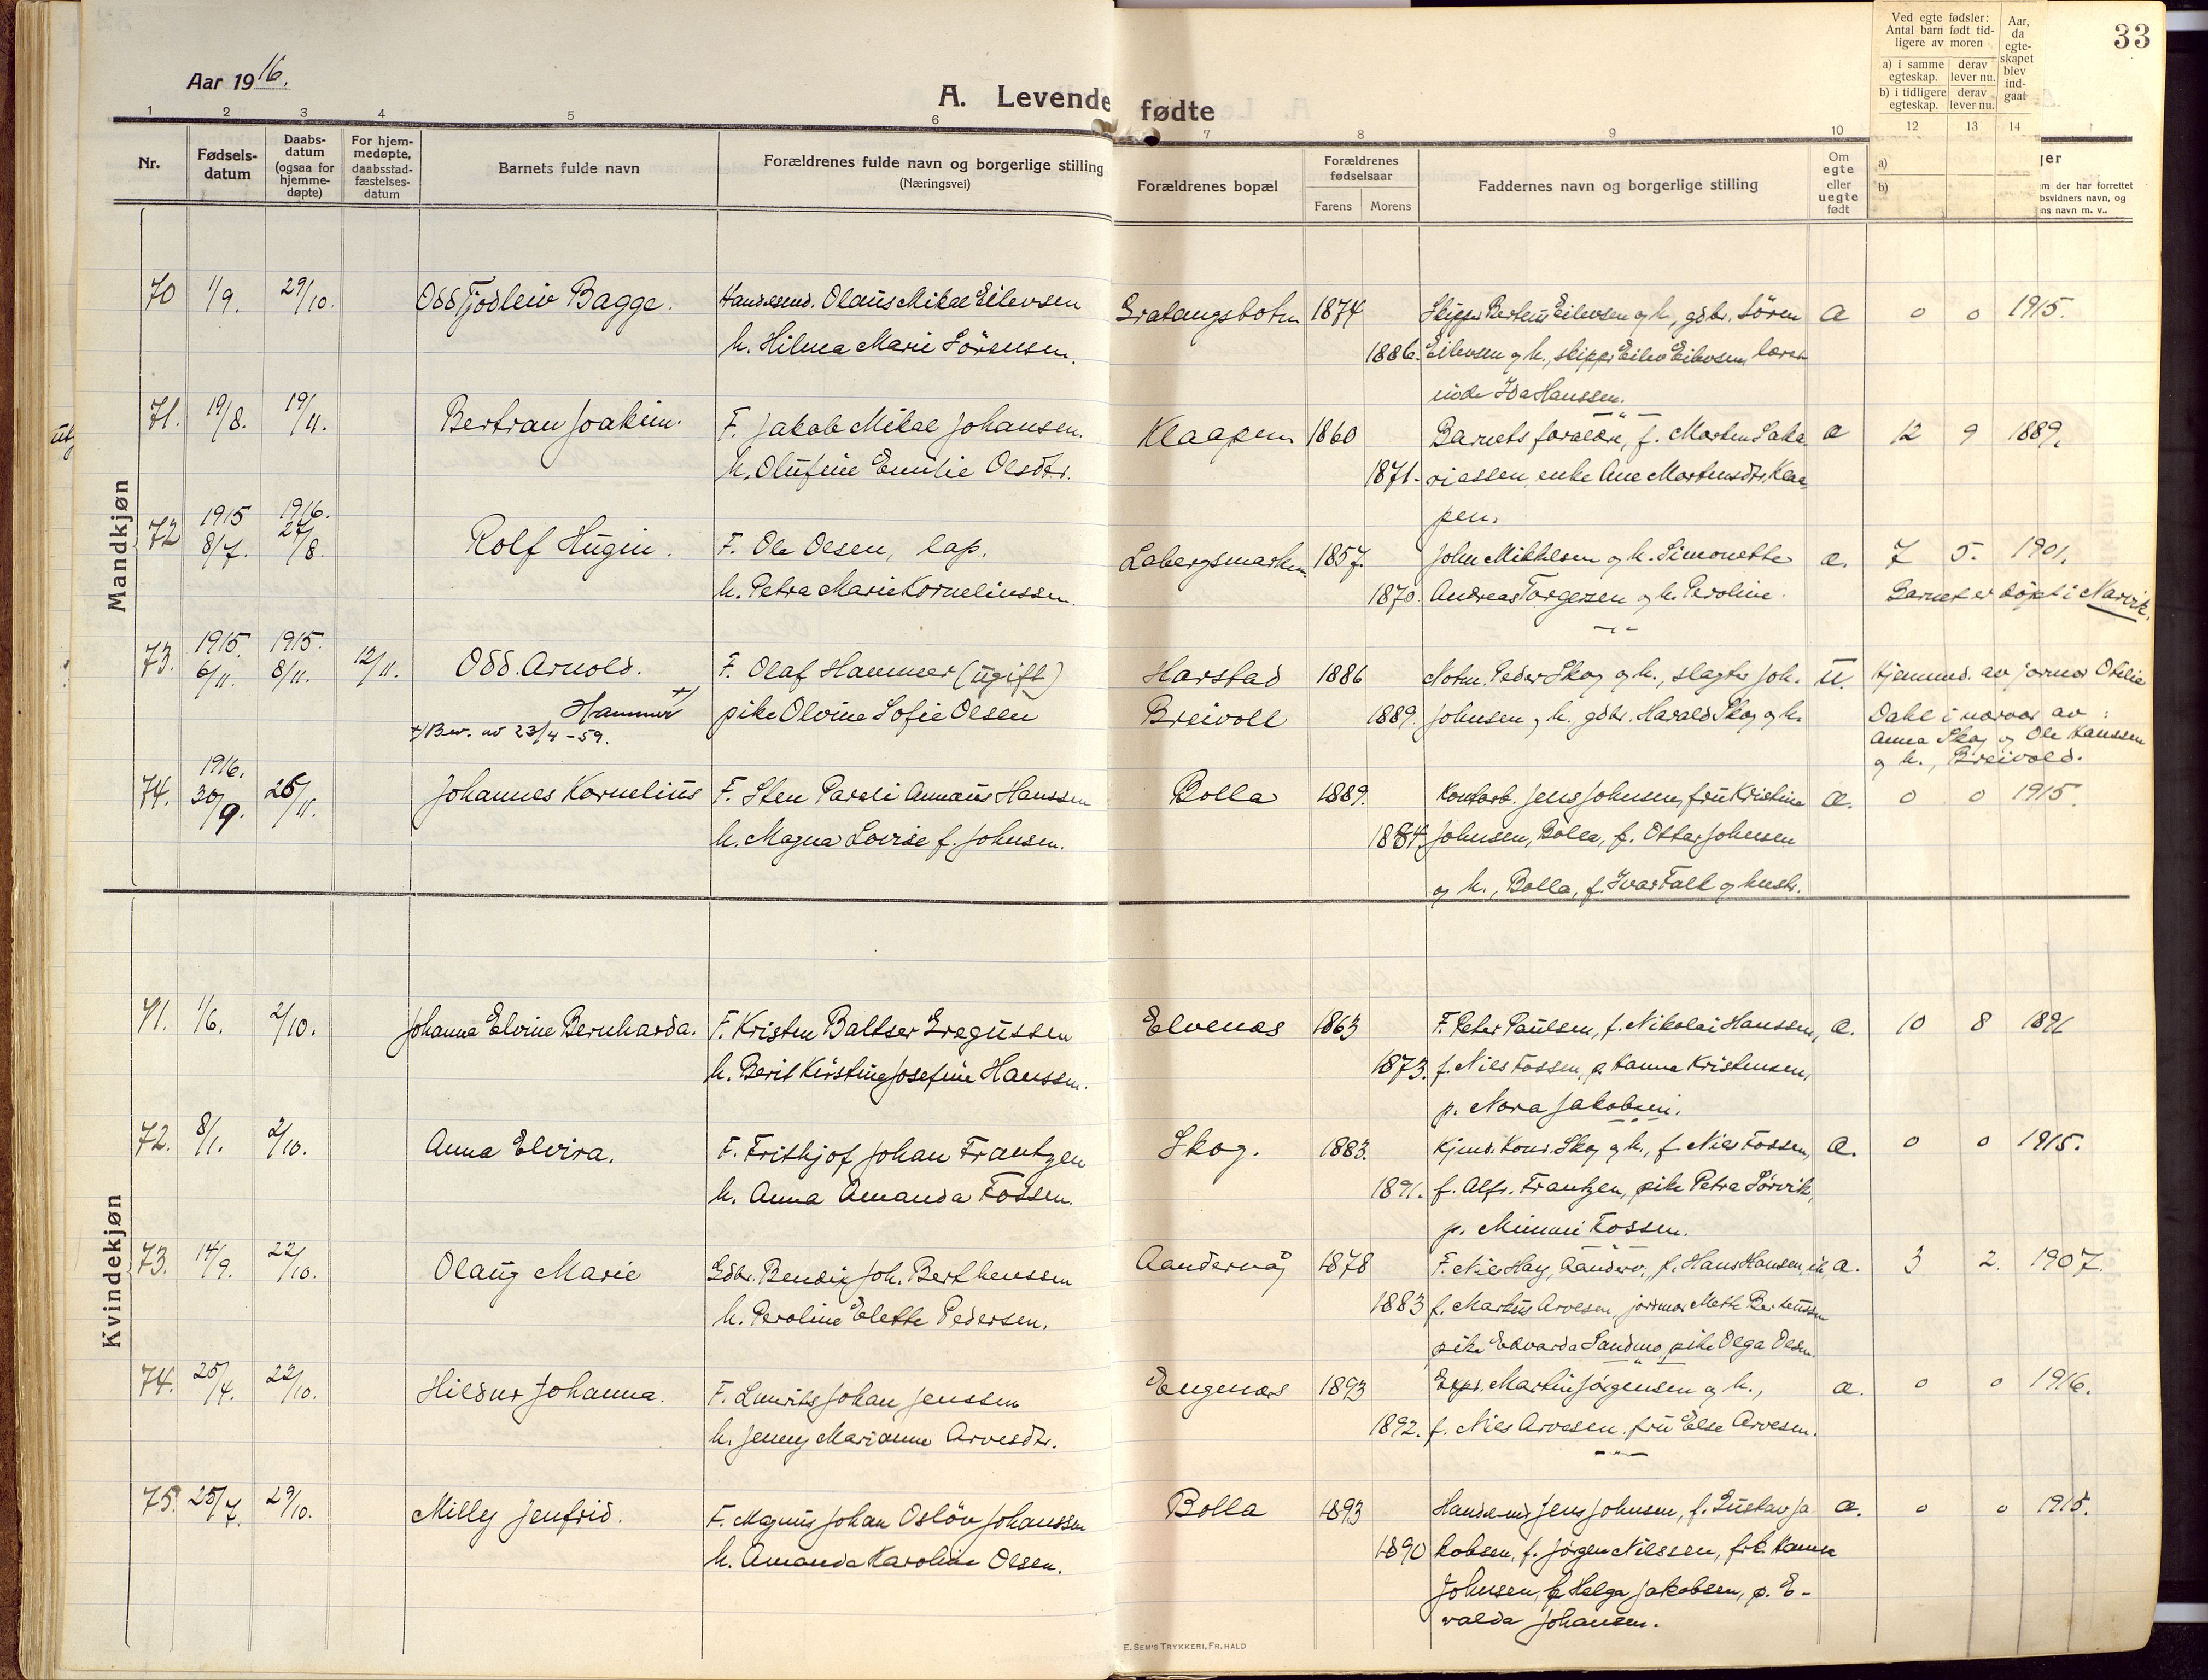 33
Ved egte fødsler: Antal barn født tidligere av moren
a) i samme egteskap. derav lever nu.
b) i tidligere egteskap. derav lever nu.
Aar, da egteskapet blev indgaat
Aar 1916.
A. Levende fødte
1 2 3 4 5 6 7 8 9 10 12 13 14
Nr.
Fødselsdatum
Daabsdatum (ogsaa for hjemmedøpte)
For hjemmedøpte, daabsstadfæstelsesdatum
Barnets fulde navn
Forældrenes fulde navn og borgerlige stilling (Næringsvei)
Forældrenes bopæl
Forældrenes fødselsaar
Farens Morens
Faddernes navn og borgerlige stilling
Om egte eller uegte født
a)
b)
Mandkjøn
70 1/9. 29/10. Odd Tjodleiv Bagge. Handelsmd. Olaus Mikal Eilevsen Gratangsbotn 1874 Skipper Berteus Eilevsen og h., gdbr. Sören æ 0 0 1915.
h. Hilma Marie Sörensen. 1886. Eilevsen og h., skipper Eilev Eilevsen, lærer-
inde Ida Hanssen.
71. 19/8. 19/11. Bertran Joakim. F. Jakob Mikal Johansen. Klaapen 1860 Barnets forældre, f. Morten Saka æ 12 9 1889.
h. Olufine Emilie Olsdtr. 1871. riassen, enke Ane Mortensdtr. Klaa
pen.
72 1915 8/7. 1916. 27/8. Rolf Hugin. F. Ole Olsen, lap. Labergsmarken 1857. John Mikkelsen og h. Simonette æ. 7 5. 1901.
h. Petra Marie Korneliussen. 1870. Andreas Torgersen og h. Peroline. Barnet er döpt i Narvik.
73. 1915. 6/11. 1915. 8/11. 12/11. Odd Arnold. F. Olaf Hammer (ugift) Harstad 1886 Notm. Peder Skog og h., slagter Joh. U. Hjemmed. av jormor Otelie
Hammer +) pike Olvine Sofie Olsen Breivoll 1889. Johnsen og h. gdbr. Harald Skog og h. Dahl i nærvær av:
+) Bev. av 23/4-59. Anna Skog og Ole Hanssen
og h., Breivold.
74. 1916. 30/9. 26/11. Johannes Kornelius F. Sten Pareli Annæus Hanssen Bolla 1889. Kontorb. Jens Johnsen, fru Kristine æ. 0 0 1915.
h. Magna Lovise f. Johnsen. 1884. Johnsen, Bolla, f. Ottar Johnsen
og h., Bolla, f. Ivar Falk og hustr.
Kvindekjøn
71. 1/6. 2/10. Johanna Elvine Bernharda. F. Kristen Baltser Gregussen Elvenes 1863 F. Peter Paulsen, f. Nikolai Hanssen, æ. 10 8 1891
h. Berit Kirstine Josefine Hanssen. 1873. f. Nils Fossen, p. Hanna Kristensen,
p. Nora Jakobsen.
72. 8/1. 2/10. Anna Elvira. F. Frithjof Johan Frantzen Skog. 1883. Kjmd. Konr. Skog og h., f. Nils Fossen, æ. 0 0 1915.
h. Anna Amanda Fossen. 1891. f. Alfr. Frantzen, pike Petra Sörvik,
p. Mimmi Fossen.
73. 14/9. 22/10. Olaug Marie Gdbr. Bendix Joh. Berthenssen Aandervåg 1878 F. Nils Hay, Aanderv., f. Hans Hansen, æ. 3 2. 1907.
h. Peroline Elette Pedersen. 1883 f. Markus Arvesen, jormor Mette Bertenssen
pike Edvarda Sandmo, pike Olga Olsen.
74. 25/4. 22/10. Hildur Johanna. F. Laurits Johan Jenssen Engenes 1893 Exp. Martin Jörgensen og h., æ. 0 0 1916.
h. Jenny Marianne Arvesdtr. 1892. f. Nils Arvesen, fru Else Arvesen.
75. 25/7. 29/10. Milly Jenfrid. F. Magnus Johan Oslöv Johanssen Bolla 1893 Handelsmd Jens Johnsen, f. Gustav Ja æ. 0 0 1915.
h. Amanda Karoline Olsen. 1890 kobsen, f. Jörgen Nilssen, frk. Hanna
Johnsen, p. Helga Jakobsen, p. E-
valda Johansen.
E. SEM'S TRYKKERI, FR.HALD